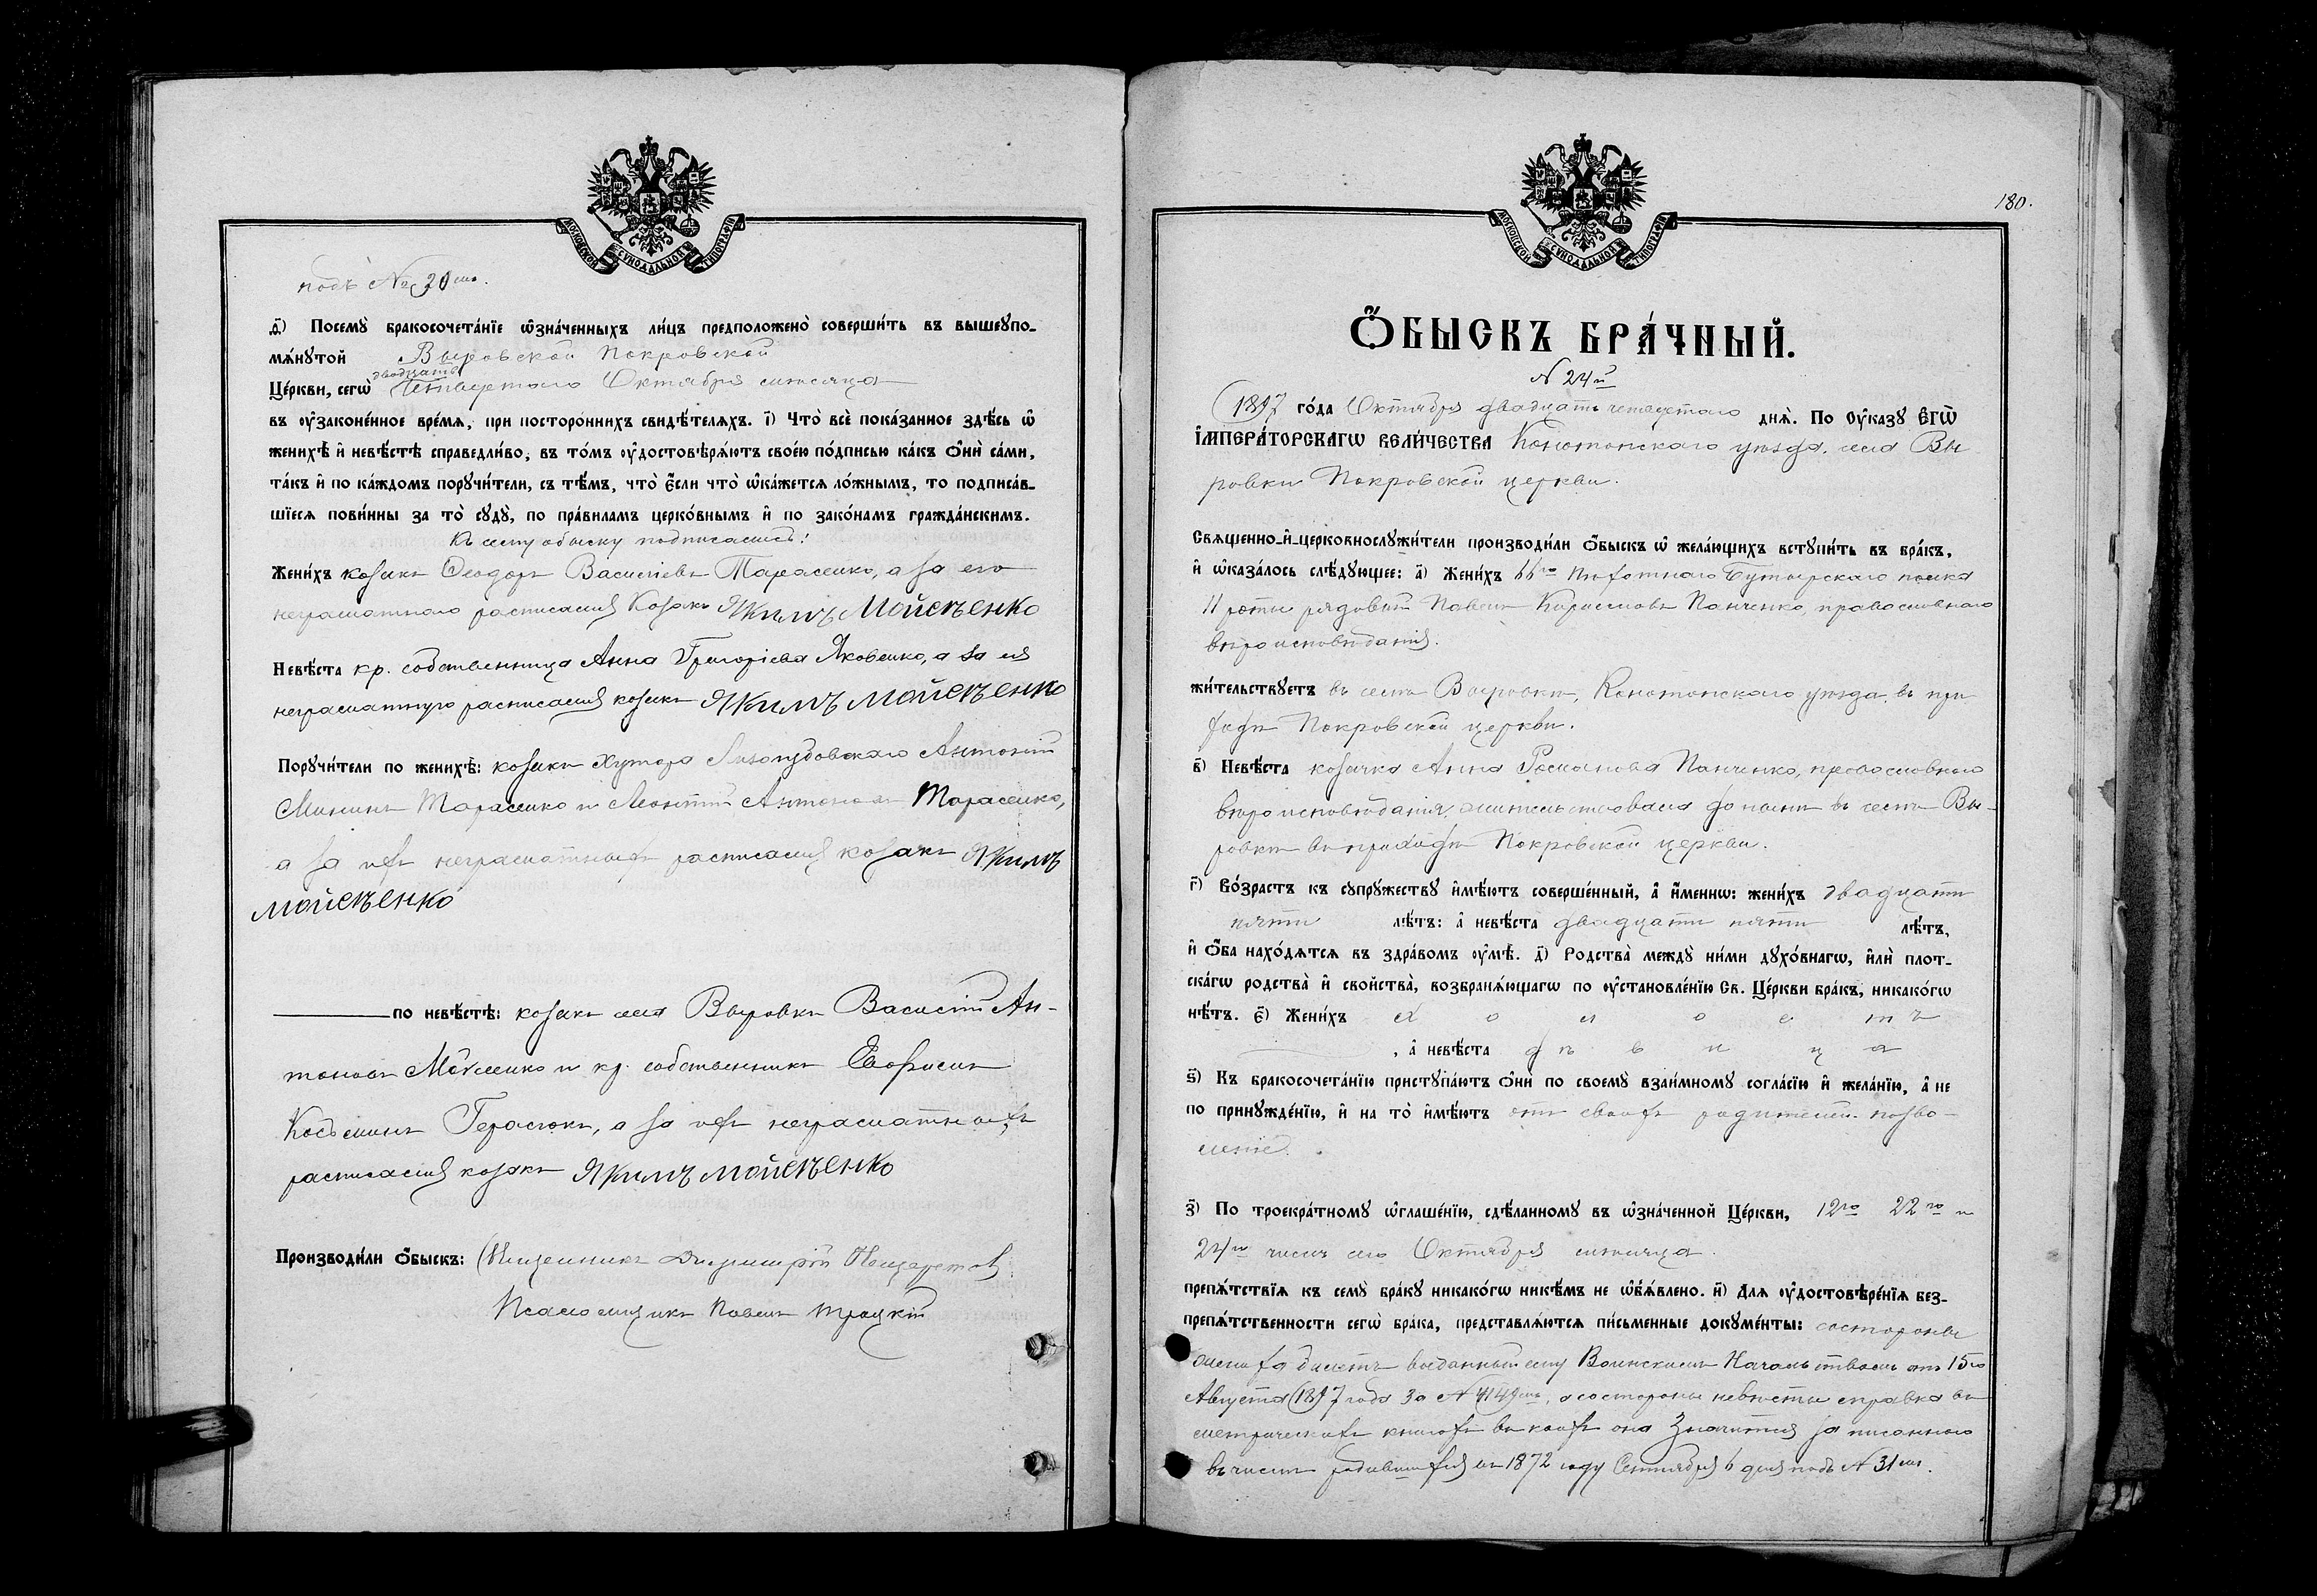 МОСКОВСКОЙ СѴНОДАЛЬНОЙ ТИПОГРАФІИ
подъ № 20мъ.
ѳ҃) Посемꙋ̀ бракосочета́нїе ѡ҆зна́ченныхъ ли́цъ предположено̀ соверши́ть въ вышеꙋпо-
мѧ́нꙋтой Выровской Покровской
двадцать
Це́ркви, сегѡ̀ Четвертаго Октября мѣсяца
въ ᲂу҆законе́нное вре́мѧ, при посторо́ннихъ свидѣ́телѧхъ. і҃) Что̀ всѐ пока́занное здѣ́сь ѡ҆
женихѣ̀ и҆ невѣ́стѣ справедли́во, въ то́мъ ᲂу҆достовѣрѧ́ютъ свое́ю по́дписью ка́къ ѻ҆нѝ са́ми,
та́къ и҆ по ка́ждомъ порꙋчи́тели, съ тѣ́мъ, что̀ є҆́сли что̀ ѡ҆ка́жетсѧ ло́жнымъ, то подписа́в-
шїесѧ пови́нны за то̀ сꙋдꙋ̀, по пра́виламъ церко́внымъ и҆ по зако́намъ гражда́нскимъ.
Къ сему обыску подписались:
Жени́хъ козакъ Ѳеодоръ Василіевъ Тарасенко, а за его
неграмотного росписался Козакъ Якимъ Мойсѣенко
Невѣ́ста кр. собственница Анна Григоріева Яковенко, а за ея
неграмотную расписался козакъ Якимъ Мойсѣенко
Порꙋчи́тели по женихѣ̀: козаки Хутора Антоній
Мининъ Тарасенко и Леонтій Антоновъ Тарасенко,
а за ихъ неграмотныхъ расписался козакъ Якимъ
Мойсѣенко
по невѣ́стѣ: козакъ села Выровки Василій Ан-
тоновъ и кр. собственникъ
Косьминъ Герасюкъ, а за ихъ неграмотныхъ
расписался козакъ Якимъ Мойсѣенко
Производи́ли ѻ҆́быскъ: Священникъ Димитрій
Псаломщикъ Павелъ Троцкій
180.
МОСКОВСКОЙ СѴНОДАЛЬНОЙ ТИПОГРАФІИ
Ѻ҆́БЫСКЪ БРА́ЧНЫЙ.
№ 24й
1897 го́да Октября двадцать четвертаго днѧ̀. По ᲂу҆казꙋ Е҆ГѠ̀
І҆МПЕРА́ТОРСКАГѠ ВЕЛИ́ЧЕСТВА Конотопскаго уѣзда, села Вы
ровки Покровской церкви.
Свѧщенно-и҆-церковнослꙋжи́тели производи́ли ѻ҆́быскъ ѡ҆ жела́ющихъ встꙋпи́ть въ бра́къ,
и҆ ѡ҆каза́лось слѣ́дꙋющее: а҃) Жени́хъ 66го Пѣхотнаго Бутырскаго полка
11 роты рядовый Павелъ Кириловъ Панченко, православнаго
вѣроисповѣданія.
жи́тельствꙋетъ въ селѣ Выровкѣ, Конотопскаго уѣзда, въ при
ходѣ Покровской церкви.
в҃) Невѣ́ста козачка Анна Романова Панченко, православнаго
вѣроисповѣданія, жительствовала до ныне въ селѣ Вы-
ровкѣ въ приходѣ Покровской церкви.
г҃) Во́зрастъ къ сꙋпрꙋ́жествꙋ и҆мѣ́ютъ соверше́нный, а҆ и҆́меннѡ: жени́хъ двадцати
пяти лѣ́тъ: а҆ невѣ́ста двадцати пяти лѣ́тъ,
и҆ ѻ҆́ба нахо́дѧтсѧ въ здра́вомъ ᲂу҆мѣ̀. д҃) Родства̀ междꙋ̀ ни́ми дꙋхо́внагѡ, и҆лѝ плот-
ска́гѡ родства̀ и҆ свойства̀, возбранѧ́ющагѡ по ᲂу҆становле́нїю Св. Це́ркви бра́къ, никако́гѡ
нѣ́тъ. є҃) Жени́хъ х о л о с т ъ
, а҆ невѣ́ста д ѣ в и ц а
ѕ҃) Къ бракосочета́нїю пристꙋпа́ютъ ѻ҆нѝ по своемꙋ̀ взаи́мномꙋ согла́сїю и҆ жела́нїю, а҆ не
по принꙋжде́нїю, и҆ на то̀ и҆мѣ́ютъ отъ своихъ родителей позво-
леніе.
з҃) По троекра́тномꙋ ѡ҆глаше́нїю, сдѣ́ланномꙋ въ ѡ҆зна́ченной Це́ркви, 12го 22го и
24го числъ сего Октября мѣсяца.
препѧ́тствїѧ къ семꙋ̀ бра́кꙋ никако́гѡ никѣ́мъ не ѡ҆б̾ѧ́влено. и҃) Длѧ ᲂу҆достовѣре́нїѧ без-
препѧ́тственности сегѡ̀ бра́ка, представлѧ́ютсѧ пи́сьменные докꙋме́нты: состороны
жениха билетъ выданный ему Воинскимъ Началь отъ 15го
Августа 1897 года за № а состороны невѣсты справка въ
метрическихъ книгахъ въ коихъ она Значится за писанною
въ числѣ родившихся въ 1872 году Сентября 6 дня подъ № 31мъ.